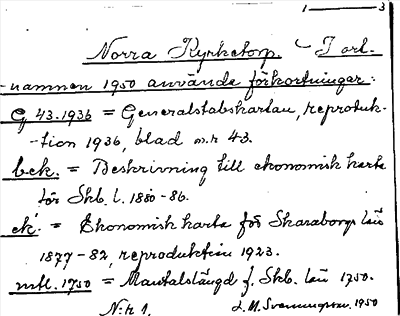 1 — 3
Norra Kyrketorp. I ort-
namnen 1950 använda förkortningar:
G 43.1936 = Generalstabskartan, reproduk-
tion 1936, blad n:r 43.
bek. = Beskrivning till ekonomisk karta
för Skb. l. 1880-86.
ek. = Ekonomisk karta för Skaraborgs län
1877-82, reproduktion 1923.
mtl. 1750 = Mantalslängd f. Skb. län 1750.
N:r 1. L. M. Svenungsson. 1950